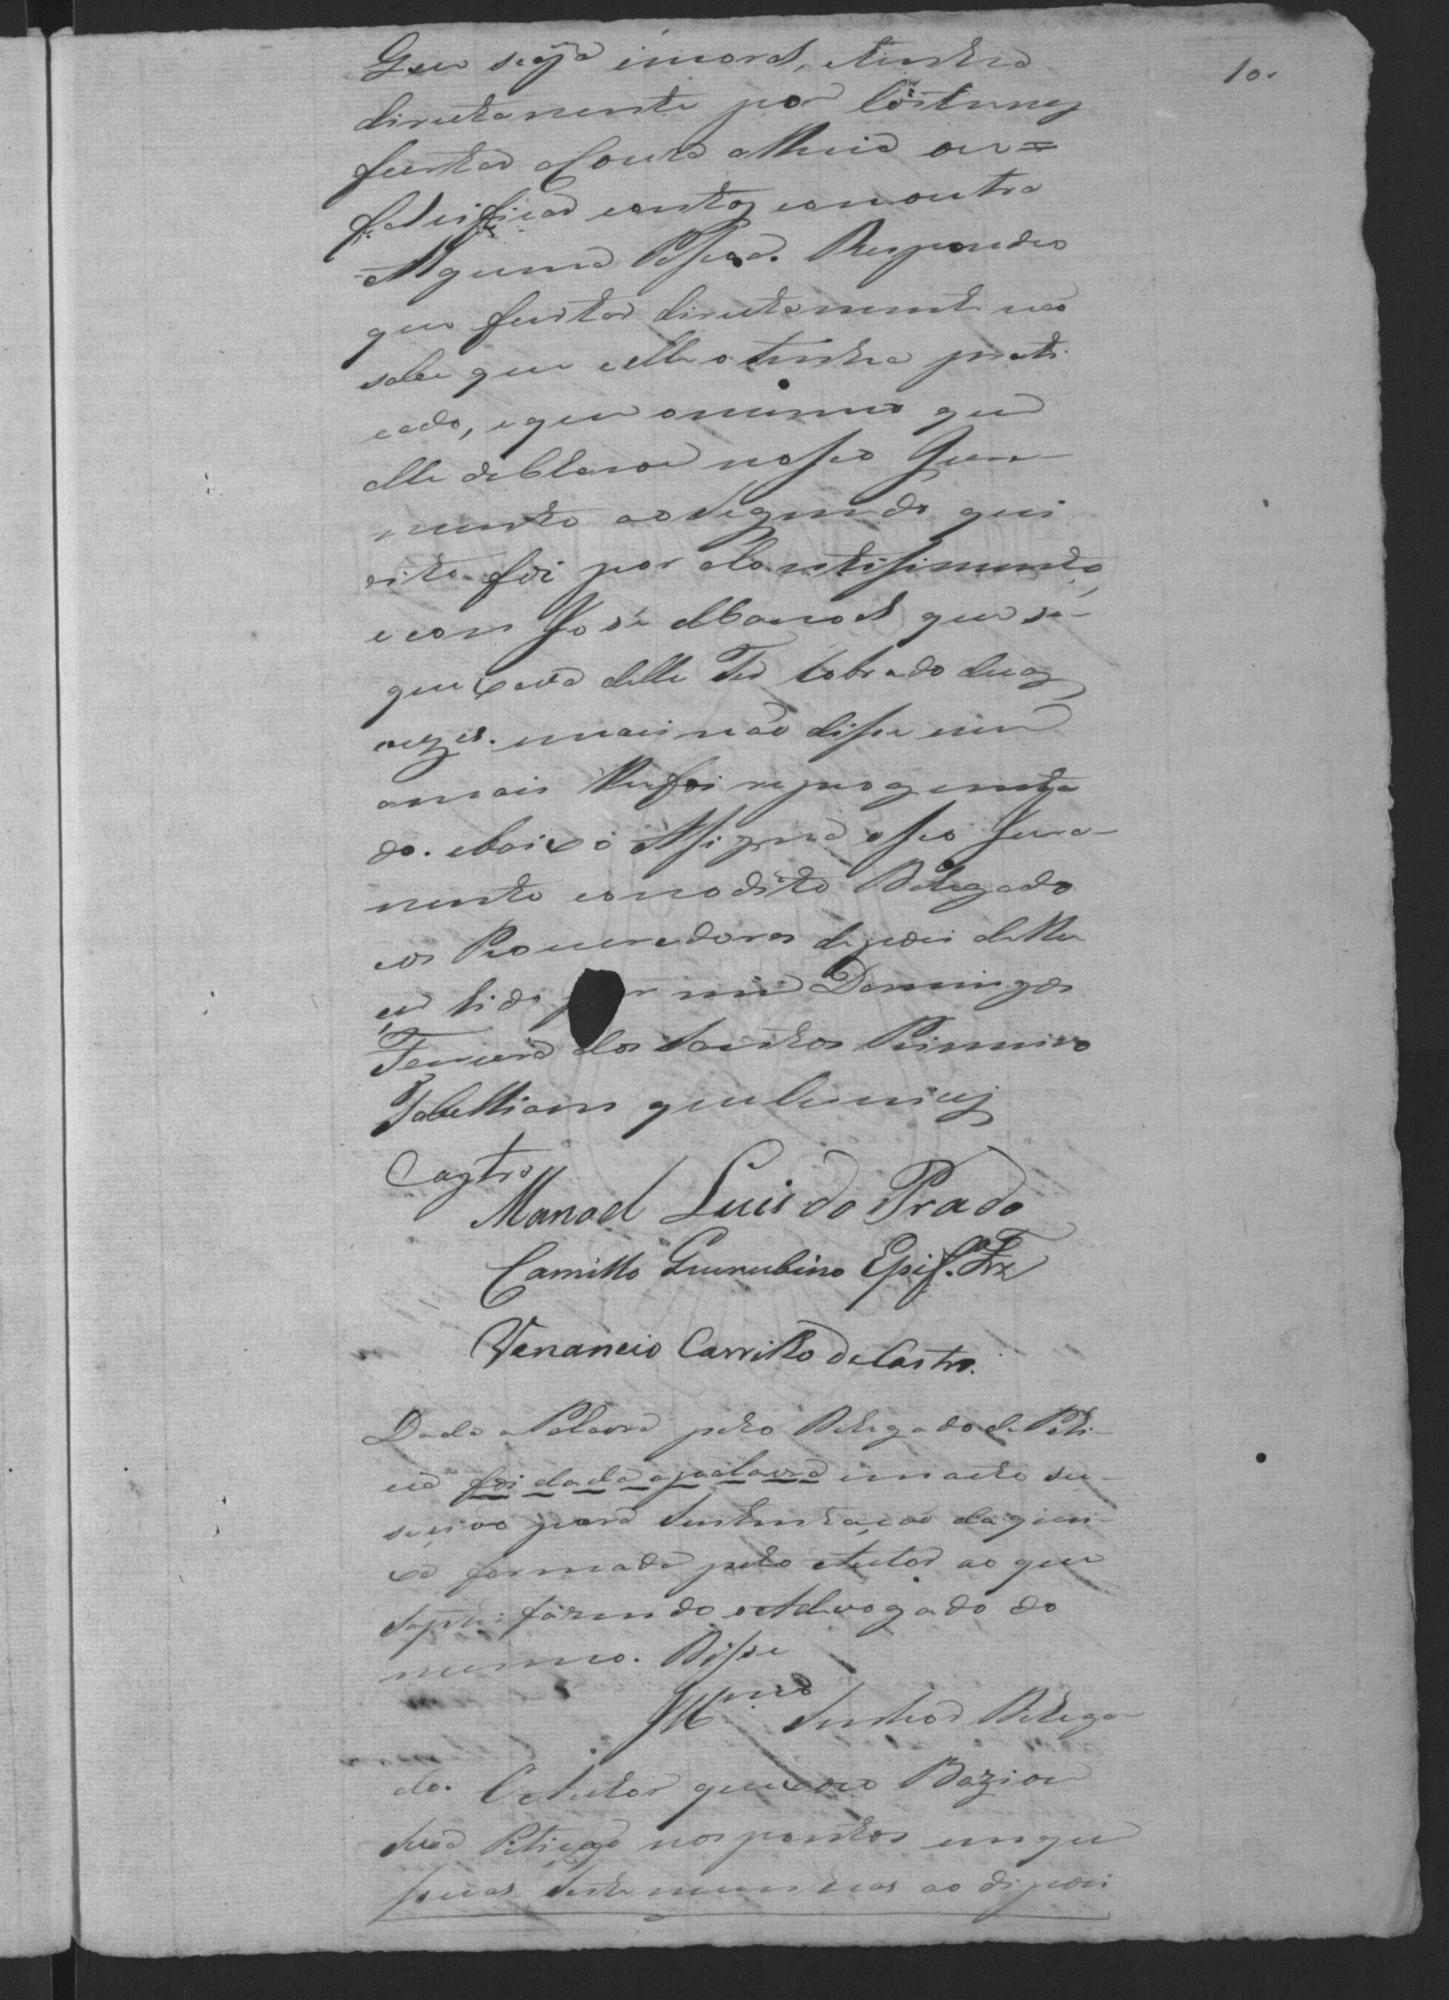 10.
Que seja imoral, e tenha
directamente por Costumes
furtar a Couza alheia ou =
falcificar contas com outra
Alguma Pessoa. Respondeo
que furtar directamente não
sabe que elle o tenha prati
cado, e que o mesmo que
elle declarou no seo Jura-
mento ao segundo qui
zito foi por
e com José Manoel que se
queixava delle Ter Cobrado duas
vezes. e mais não disse nem
a mais lhe foi
do. abaixo Assigna o seo Jura-
mento com o dito Delegado
e os Procuradores depois de lhe
ser lido por mim Domingos
Ferreira dos Santos Primeiro
Tabelliam que Escrevi
Castro
Manoel Luis do Prado
Camillo Querubino Epif. Frz
Venancio Carrilho de Castro.
Dada a Palavra pelo Delegado de Poli-
cia foi dada a palavra em acto su-
secivo para sustentação da quei-
xa formada pelo Autor ao que
satisfazendo o Advogado do
mesmo. Disse
Ill.mo Senhor Delega-
do. O Autor queixoso Baziou
sua Petição nos pontos em que
suas testemunhas ao depois